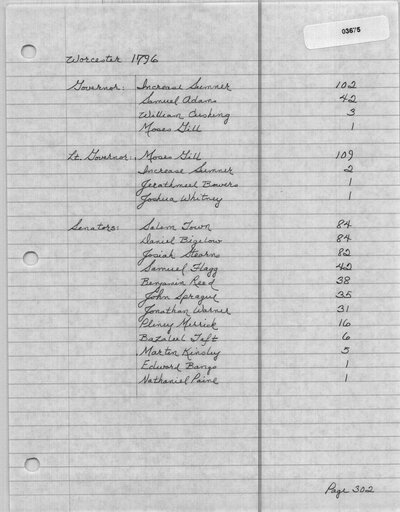 03675
Worcester 1796
Governor: Increase Sumner 102
Samuel Adams 42
William Cushing 3
Moses Gill 1
Lt. Governor: Moses Gill 109
Increase Sumner 2
Jerathmeel Bowers 1
Joshua Whitney 1
Senators: Salem Town 84
Daniel Bigelow 84
Josiah Stearns 82
Samuel Flagg 42
Benjamin Reed 38
John Sprague 35
Jonathan Warner 31
Pliney Merrick 16
Bazaleel Taft 6
Martin Kinsley 5
Edward Bangs 1
Nathaniel Paine 1
Page 302